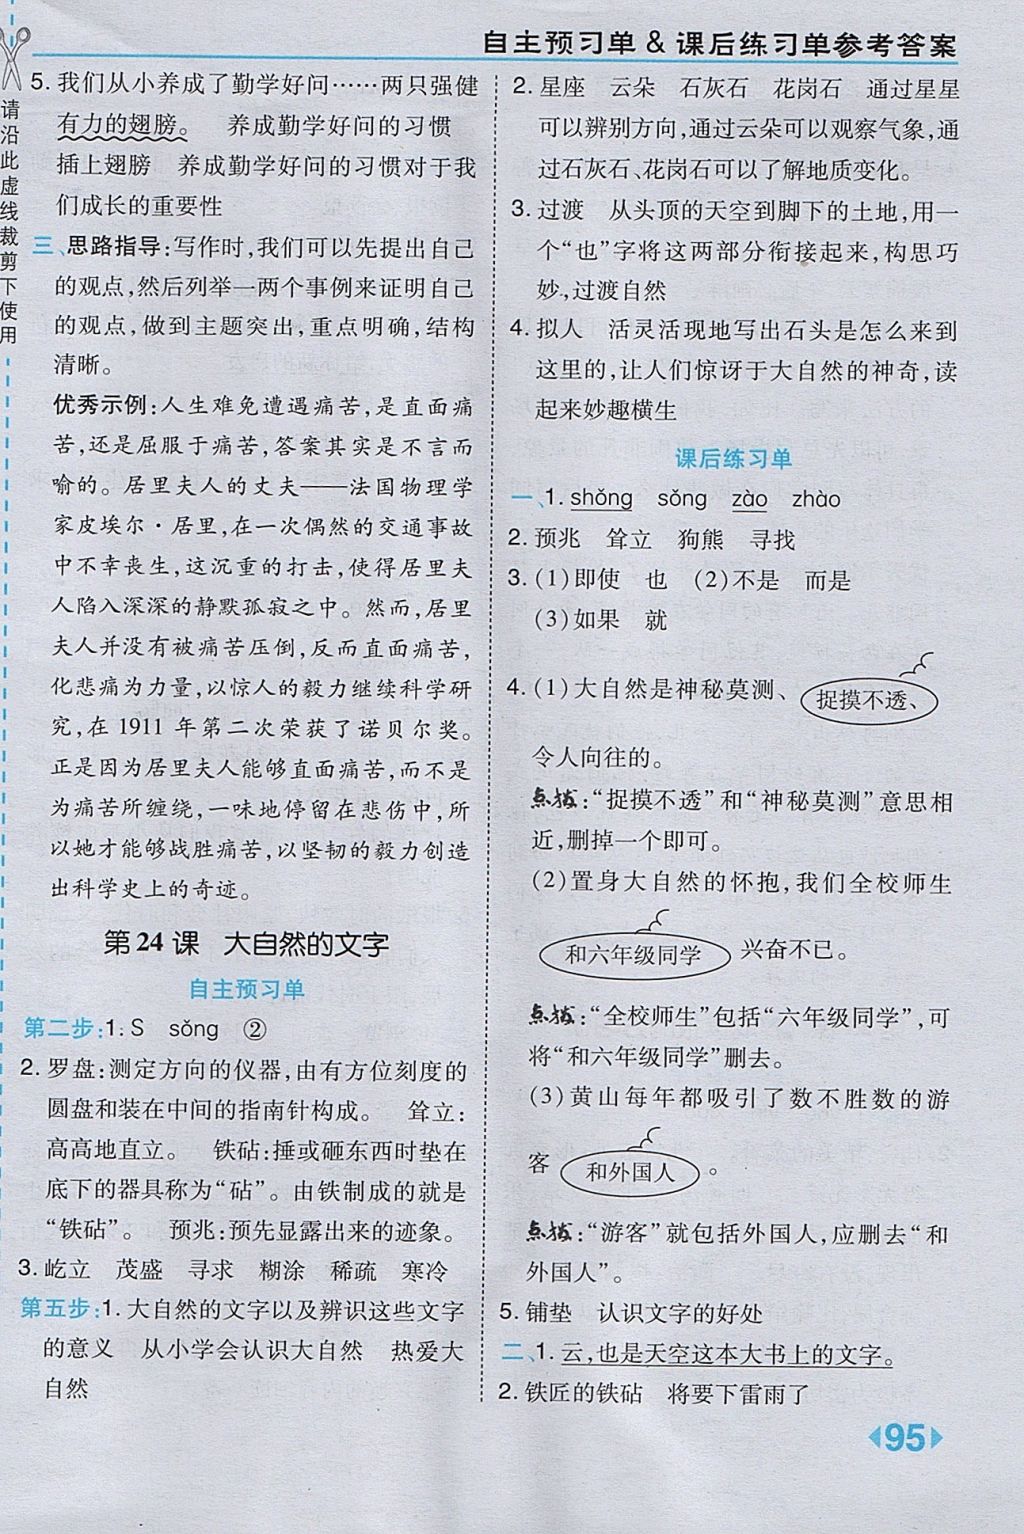 自主预习单&课后练习单参考答案
请沿此虚线裁剪下使用
5. 我们从小养成了勤学好问……两只强健
有力的翅膀。 养成勤学好问的习惯
插上翅膀 养成勤学好问的习惯对于我
们成长的重要性
三、思路指导:写作时,我们可以先提出自己
的观点,然后列举一两个事例来证明自己
的观点,做到主题突出,重点明确,结构
清晰。
优秀示例:人生难免遭遇痛苦,是直面痛
苦,还是屈服于痛苦,答案其实是不言而
喻的。居里夫人的丈夫——法国物理学
家皮埃尔·居里,在一次偶然的交通事故
中不幸丧生,这沉重的打击,使得居里夫
人陷入深深的静默孤寂之中。然而,居里
夫人并没有被痛苦压倒,反而直面痛苦,
化悲痛为力量,以惊人的毅力继续科学研
究,在 1911 年第二次荣获了诺贝尔奖。
正是因为居里夫人能够直面痛苦,而不是
为痛苦所缠绕,一味地停留在悲伤中,所
以她才能够战胜痛苦,以坚韧的毅力创造
出科学史上的奇迹。
第 24 课 大自然的文字
自主预习单
第二步:1. S sǒng ②
2. 罗盘:测定方向的仪器,由有方位刻度的
圆盘和装在中间的指南针构成。 耸立:
高高地直立。 铁砧:捶或砸东西时垫在
底下的器具称为“砧”。由铁制成的就是
“铁砧”。 预兆:预先显露出来的迹象。
3. 屹立 茂盛 寻求 糊涂 稀疏 寒冷
第五步:1. 大自然的文字以及辨识这些文字
的意义 从小学会认识大自然 热爱大
自然
2. 星座 云朵 石灰石 花岗石 通过星星
可以辨别方向,通过云朵可以观察气象,通
过石灰石、花岗石可以了解地质变化。
3. 过渡 从头顶的天空到脚下的土地,用一
个“也”字将这两部分衔接起来,构思巧
妙,过渡自然
4. 拟人 活灵活现地写出石头是怎么来到
这里的,让人们惊讶于大自然的神奇,读
起来妙趣横生
课后练习单
一、1. shǒng sǒng zào zhào
2. 预兆 耸立 狗熊 寻找
3. (1)即使 也 (2)不是 而是
(3)如果 就
4. (1)大自然是神秘莫测、捉摸不透、
令人向往的。
点拨:“捉摸不透”和“神秘莫测”意思相
近,删掉一个即可。
(2)置身大自然的怀抱,我们全校师生
和六年级同学 兴奋不已。
点拨:“全校师生”包括“六年级同学”,可
将“和六年级同学”删去。
(3)黄山每年都吸引了数不胜数的游
客 和外国人 。
点拨:“游客”就包括外国人,应删去“和
外国人”。
5. 铺垫 认识文字的好处
二、1. 云,也是天空这本大书上的文字。
2. 铁匠的铁砧 将要下雷雨了
95